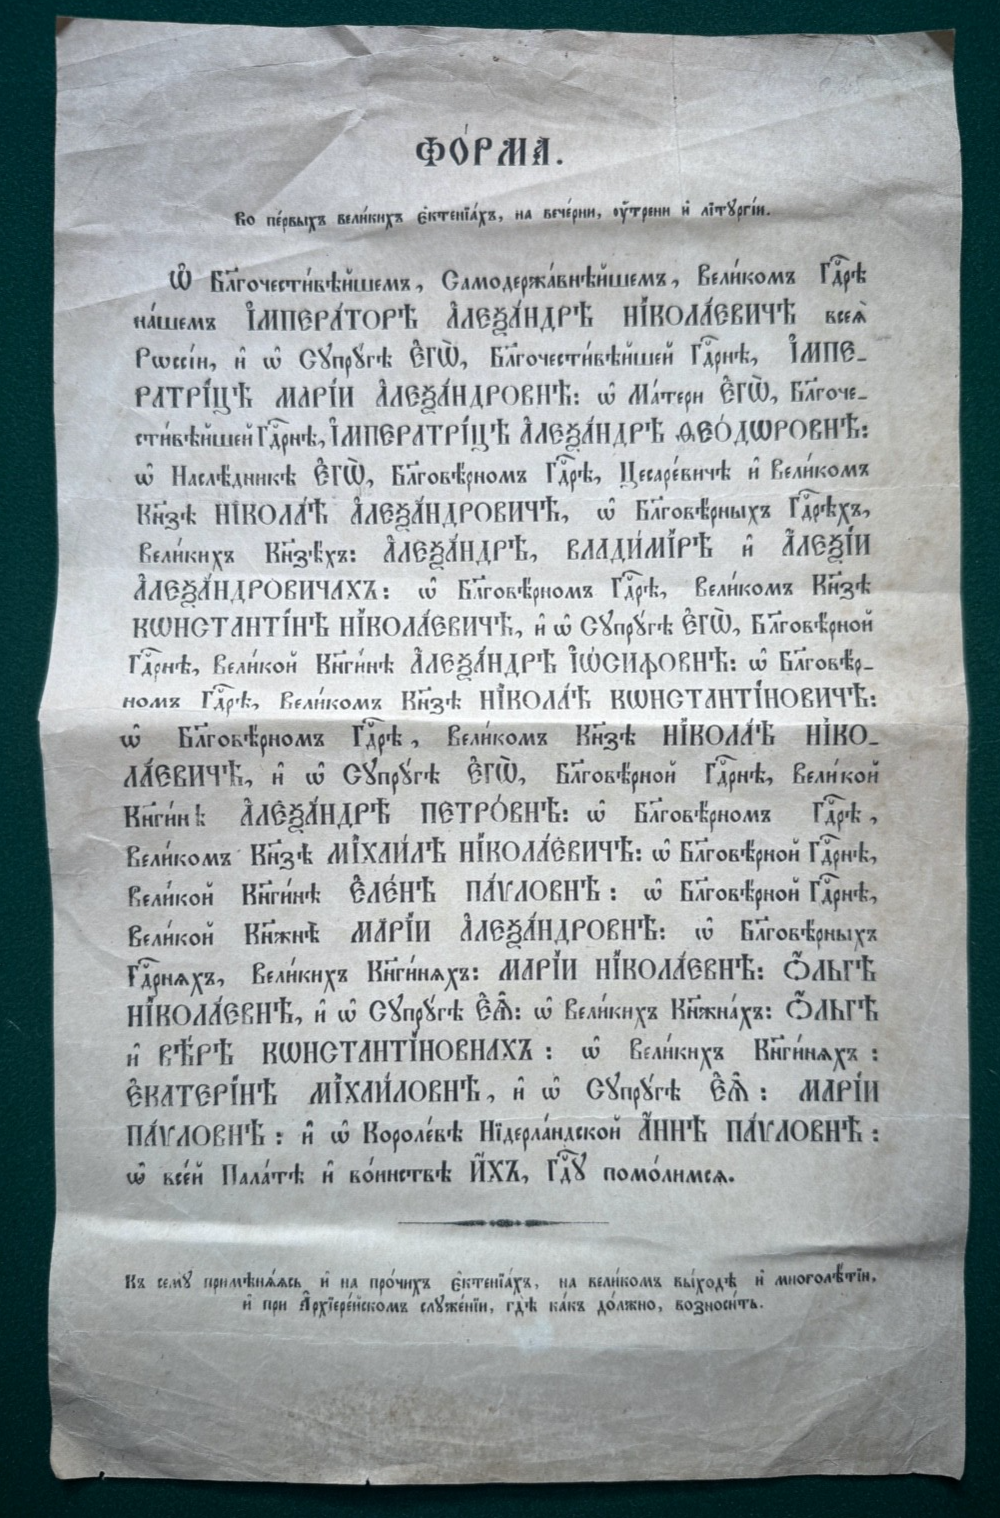 ФО́РМА.
Во пе́рвыхъ вели́кихъ є҆ктенїа́хъ, на вече́рни, оу҆́трени и҆ лїтꙋргі́и.
Ѽ Бл҃гочести́вѣйшемъ, Самодержа́внѣйшемъ, Вели́комъ Гд҇рѣ
на́шемъ І҆МПЕРА́ТОРѢ А҆ЛЕѮА́НДРѢ НІКОЛА́ЕВИЧѢ всеѧ̀
Рѡссі́и, и҆ ѡ҆ Сꙋпрꙋ́гѣ Є҆ГѠ̀, Бл҃гочести́вѣйшей Гд҇рнѣ, І҆МПЕ-
РАТРІ́ЦѢ МАРІ́И А҆ЛЕѮА́НДРОВНѢ: ѡ҆ Ма́тери Є҆ГѠ̀, Бл҃гоче-
сти́вѣйшей Гд҇рнѣ, І҆МПЕРАТРІ́ЦѢ А҆ЛЕѮА́НДРѢ ѲЕО́ДѠРОВНѢ:
ѡ҆ Наслѣ́дникѣ Є҆ГѠ̀, Бл҃говѣ́рномъ Гд҇рѣ, Цесаре́вичѣ и҆ Вели́комъ
Кн҃зѣ НІКОЛА́Ѣ А҆ЛЕѮА́НДРОВИЧѢ, ѡ҆ Бл҃говѣ́рныхъ Гд҇рѣхъ,
Вели́кихъ Кн҃зѣхъ: А҆ЛЕѮА́НДРѢ, ВЛАДИ́МІРѢ и҆ А҆ЛЕѮІ́И
А҆ЛЕѮА́НДРОВИЧАХЪ: ѡ҆ Бл҃говѣ́рномъ Гд҇рѣ, Вели́комъ Кн҃зѣ
КѠНСТАНТІ́НѢ НІКОЛА́ЕВИЧѢ, и҆ ѡ҆ Сꙋпрꙋ́гѣ Є҆ГѠ̀, Бл҃говѣ́рной
Гд҇рнѣ, Вели́кой Кн҃ги́нѣ А҆ЛЕѮА́НДРѢ І҆Ѡ́СИФОВНѢ: ѡ҆ Бл҃говѣ́р-
номъ Гд҇рѣ, Вели́комъ Кн҃зѣ НІКОЛА́Ѣ КѠНСТАНТІ́НОВИЧѢ:
ѡ҆ Бл҃говѣ́рномъ Гд҇рѣ, Вели́комъ Кн҃зѣ НІКОЛА́Ѣ НІКО-
ЛА́ЕВИЧѢ, и҆ ѡ҆ Сꙋпрꙋ́гѣ Є҆ГѠ̀, Бл҃говѣ́рной Гд҇рнѣ, Вели́кой
Кн҃ги́нѣ А҆ЛЕѮА́НДРѢ ПЕТРО́ВНѢ: ѡ҆ Бл҃говѣ́рномъ Гд҇рѣ,
Вели́комъ Кн҃зѣ МІХАИ́ЛѢ НІКОЛА́ЕВИЧѢ: ѡ҆ Бл҃говѣ́рной Гд҇рнѣ,
Вели́кой Кн҃ги́нѣ Є҆ЛЕ́НѢ ПА́ѴЛОВНѢ: ѡ҆ Бл҃говѣ́рной Гд҇рнѣ,
Вели́кой Кн҃жнѣ̀ МАРІ́И А҆ЛЕѮА́НДРОВНѢ: ѡ҆ Бл҃говѣ́рныхъ
Гд҇рнѧхъ, Вели́кихъ Кн҃ги́нѧхъ: МАРІ́И НІКОЛА́ЕВНѢ: Ѻ҆́ЛЬГѢ
НІКОЛА́ЕВНѢ, и҆ ѡ҆ Сꙋпрꙋ́гѣ Є҆Ѧ̀: ѡ҆ Вели́кихъ Кн҃жна́хъ: Ѻ҆́ЛЬГѢ
и҆ ВѢ́РѢ КѠНСТАНТІ́НОВНАХЪ: ѡ҆ Вели́кихъ Кн҃ги́нѧхъ:
Є҆КАТЕРІ́НѢ МІХАИ́ЛОВНѢ, и҆ ѡ҆ Сꙋпрꙋ́гѣ Є҆Ѧ̀: МАРІ́И
ПА́ѴЛОВНѢ: и҆ ѡ҆ Короле́вѣ Нїдерла́ндской А҆́ННѢ ПА́ѴЛОВНѢ:
ѡ҆ все́й Пала́тѣ и҆ во́инствѣ И҆́ХЪ, Гд҇ꙋ помо́лимсѧ.
Къ семꙋ̀ примѣнѧ́ѧсь и҆ на про́чихъ є҆ктенїа́хъ, на вели́комъ вы́ходѣ и҆ многолѣ́тіи,
и҆ при А҆рхїере́йскомъ слꙋже́нїи, гдѣ̀ ка́къ до́лжно, возноси́ть.